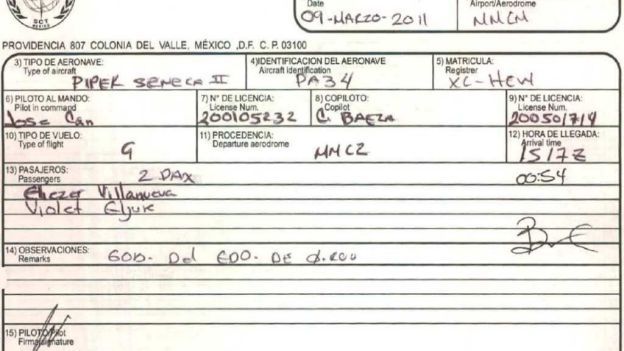 SCT
MÉXICO
Date
Airport/Aerodrome
09-MARZO-2011
MMCM
PROVIDENCIA 807 COLONIA DEL VALLE, MÉXICO ,D.F. C.P. 03100
3) TIPO DE AERONAVE: 4)IDENTIFICACION DEL AERONAVE 5) MATRICULA:
Type of aircraft Aircraft Identification Registrer
PIPER SENECA II PA34 XC-HCW
6) PILOTO AL MANDO: 7) N° DE LICENCIA: 8) COPILOTO: 9) N° DE LICENCIA:
Pilot in command License Num. Copilot License Num.
Jose Can 200105232 C. BAEZA 200501714
10) TIPO DE VUELO: 11) PROCEDENCIA: 12) HORA DE LLEGADA:
Type of flight Departure aerodrome Arrival time
G MMCZ 1517Z
13) PASAJEROS: 2 PAX 00:54
Passengers
Eliezer Villanueva
Violet
14) OBSERVACIONES: GOB. Del EDO. DE Q.ROO
Remarks
15) PILOTO/Pilot
Firma/signature